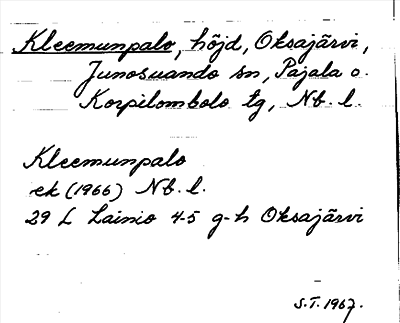 Kleemunpalo, höjd, Oksajärvi,
Junosuando sn, Pajala o.
Korpilombolo tg, Nb. l.
Kleemunpalo
ek (1966) Nb. l.
29 L Lainio 4-5 g-h Oksajärvi
S.T. 1967.